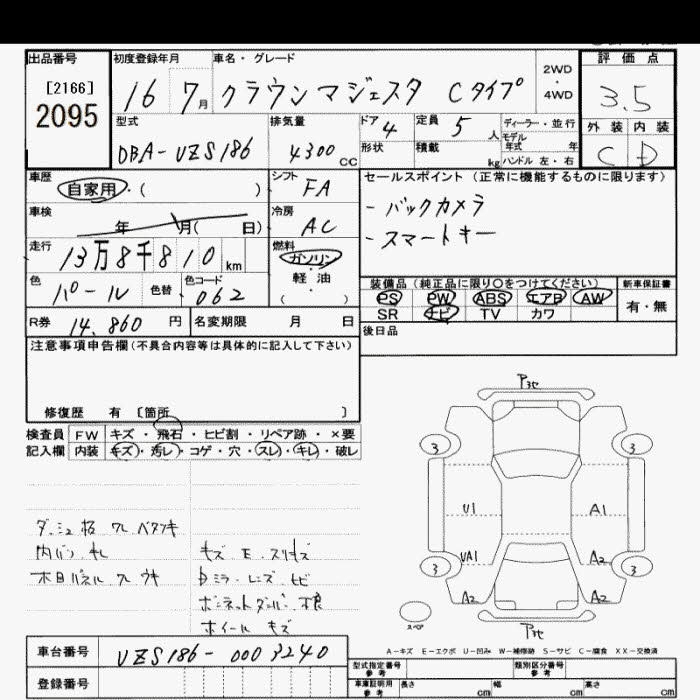 出品番号 初度登録年月 車名・グレード 2WD 評価点
[2166] 16 7月 クラウンマジェスタ Cタイプ 4WD 3.5
2095 型式 排気量 ドア 4 定員 5人 ディーラー・並行 外装 内装
DBA-UZS186 4300cc 形状 積載 kg モデル年式 年 C D
ハンドル 左・右
車歴 自家用・( ) シフト FA セールスポイント(正常に機能するものに限ります)
車検 年 月( 日) 冷房 AC - バックカメラ
走行 13万8千810km 燃料 ガソリン - スマートキー
軽油
( )
色 パール 色替 色コード 062 装備品(純正品に限り〇をつけてください) 新車保証書
PS PW ABS エアB AW 有・無
SR ナビ TV カワ
R券 14,860円 名変期限 月 日 後日品
注意事項申告欄(不具合内容等は具体的に記入して下さい)
修復歴 有 〔箇所 〕
検査員 FW キズ・飛石・ヒビ割・リペア跡・×要
記入欄 内装 キズ・汚レ・コゲ・穴・スレ・キレ・破レ
P3セ
3 3
U1 A1
UA1 A2
3 3
A2 A2
スペア P3セ
ダッシュ板 ワレ ベタツキ
内バン キレ キズ E スリキズ
木目パネル ワレ ウキ ミラーレンズ ヒビ
ボンネットダンパー 不良
ホイール キズ
A-キズ E-エクボ U-凹み W-補修跡 S-サビ C-腐食 XX-交換済
車台番号 UZS186-0003240
登録番号
型式指定番号 参考 類別区分番号 参考
車庫証明用 参考 長さ cm 幅 cm 高さ cm